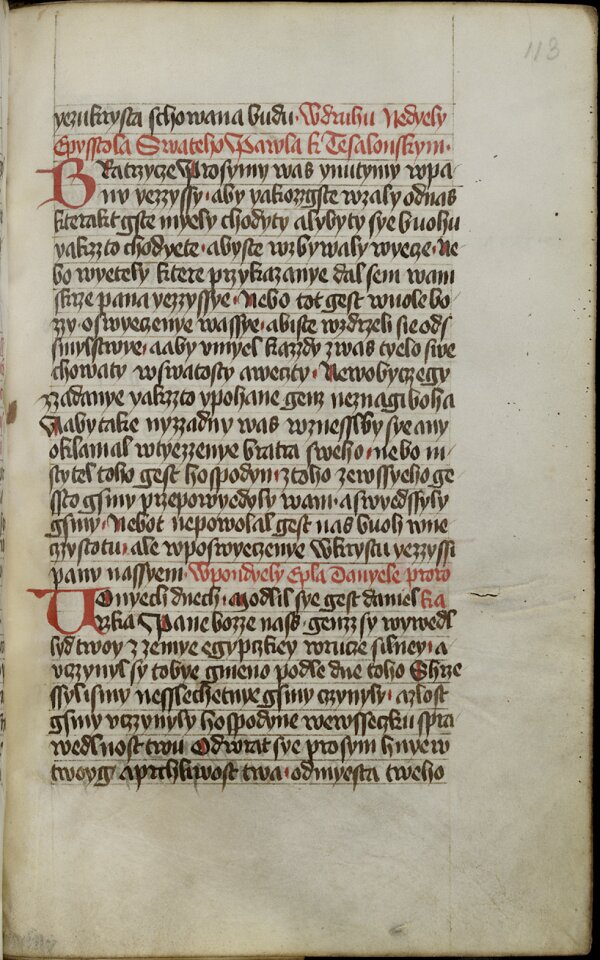 113
yezukrysta schowana budu · Wdruhu Nedyely
Epysstola Swateho Pawla k Tesalonskym ·
Bratrzycze Prosymy was ynutymy wpa
nu yezzyssy · aby yakozzgste wzaly odnas
kterakt gste myely chodyty alybyty sye buohu
yakzzto chodyete · abyste wzbywaly wyecze · Ne
bo wyetely ktere przykazanye dal sem wam
skrze pana yezzyssye · Nebo tot gest wuole bo
zzy · oswyeczenye wassye · abiste wzdrzeli sie ods
smylstwye · a aby vmyel kazzdy zwas tyelo swe
chowaty wswatosty awecity · Newobyczegy
zzadanye yakzzto vpohane genz neznagi boha
Naby take nyzzadny was wznesslby sye any
oklamal wtyezzenye bratra sweho · nebo m
stytel toho gest hospodyn · ztoho zewssyeho ge
ssto gsmy przepowyedyly wam · aswyedssyly
gsmy · Nebot nepowolal gest nas buoh wne
czystotu · ale wposwyeczenye Wkrystu yezzyssi
panu nassyem · Wpondyely Epla Danyele proro
Wonyech dnech · modlil sye gest daniel ka
rzka Pane bozze nass · genzz sy wywedl
lyd twoy z zemye egypczkey wrucie silney · a
vczynyl sy tobye gmeno podle dne toho Shrze
ssyli smy nesslechetnye gsmy czynyly · azlost
gsmy vczynyly hospodyne wewssecku spra
wedlnost twu Odwrat sye prosym hnyew
twoyg aprchkiwost twa · odmyesta tweho